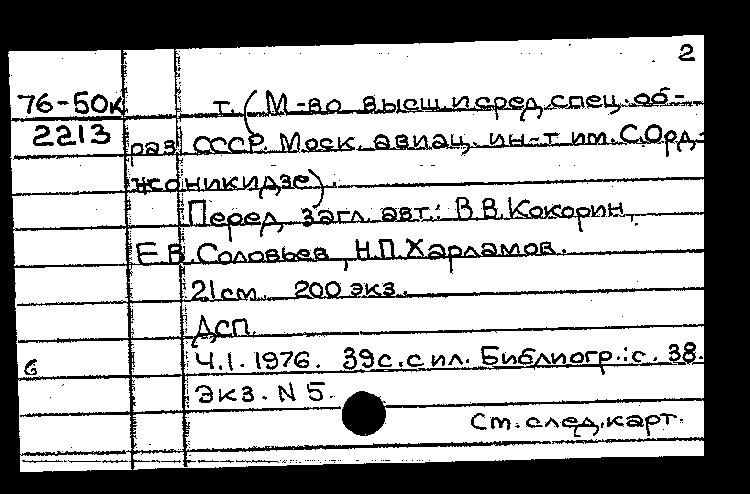 2
76-50к т. (М-во высш. и сред. спец. об-
2213 раз. СССР. Моск. авиац. ин-т им. С. Орд-
жоникидзе).
Перед загл. авт.: В.В. Кокорин,
Е.В. Соловьев, Н.П. Харламов.
21 см. 200 экз.
ДСП.
6 Ч.1. 1976. 39 с. с ил. Библиогр.: с. 38.
Экз. N 5.
См. след. карт.